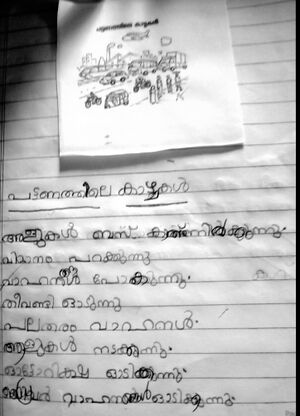 പട്ടണത്തിലെ കാഴ്ചകൾ
പട്ടണത്തിലെ കാഴ്ചകൾ
ആളുകൾ ബസ് കാത്തുനിൽക്കുന്നു.
വിമാനം പറക്കുന്നു
വാഹനങ്ങൾ പോകുന്നു.
തീവണ്ടി ഓടുന്നു
പലതരം വാഹനങ്ങൾ.
ആളുകൾ നടക്കുന്നു.
ഓട്ടോറിക്ഷ ഓടിക്കുന്നു.
വാഹനങ്ങൾ ഓടിക്കുന്നു.